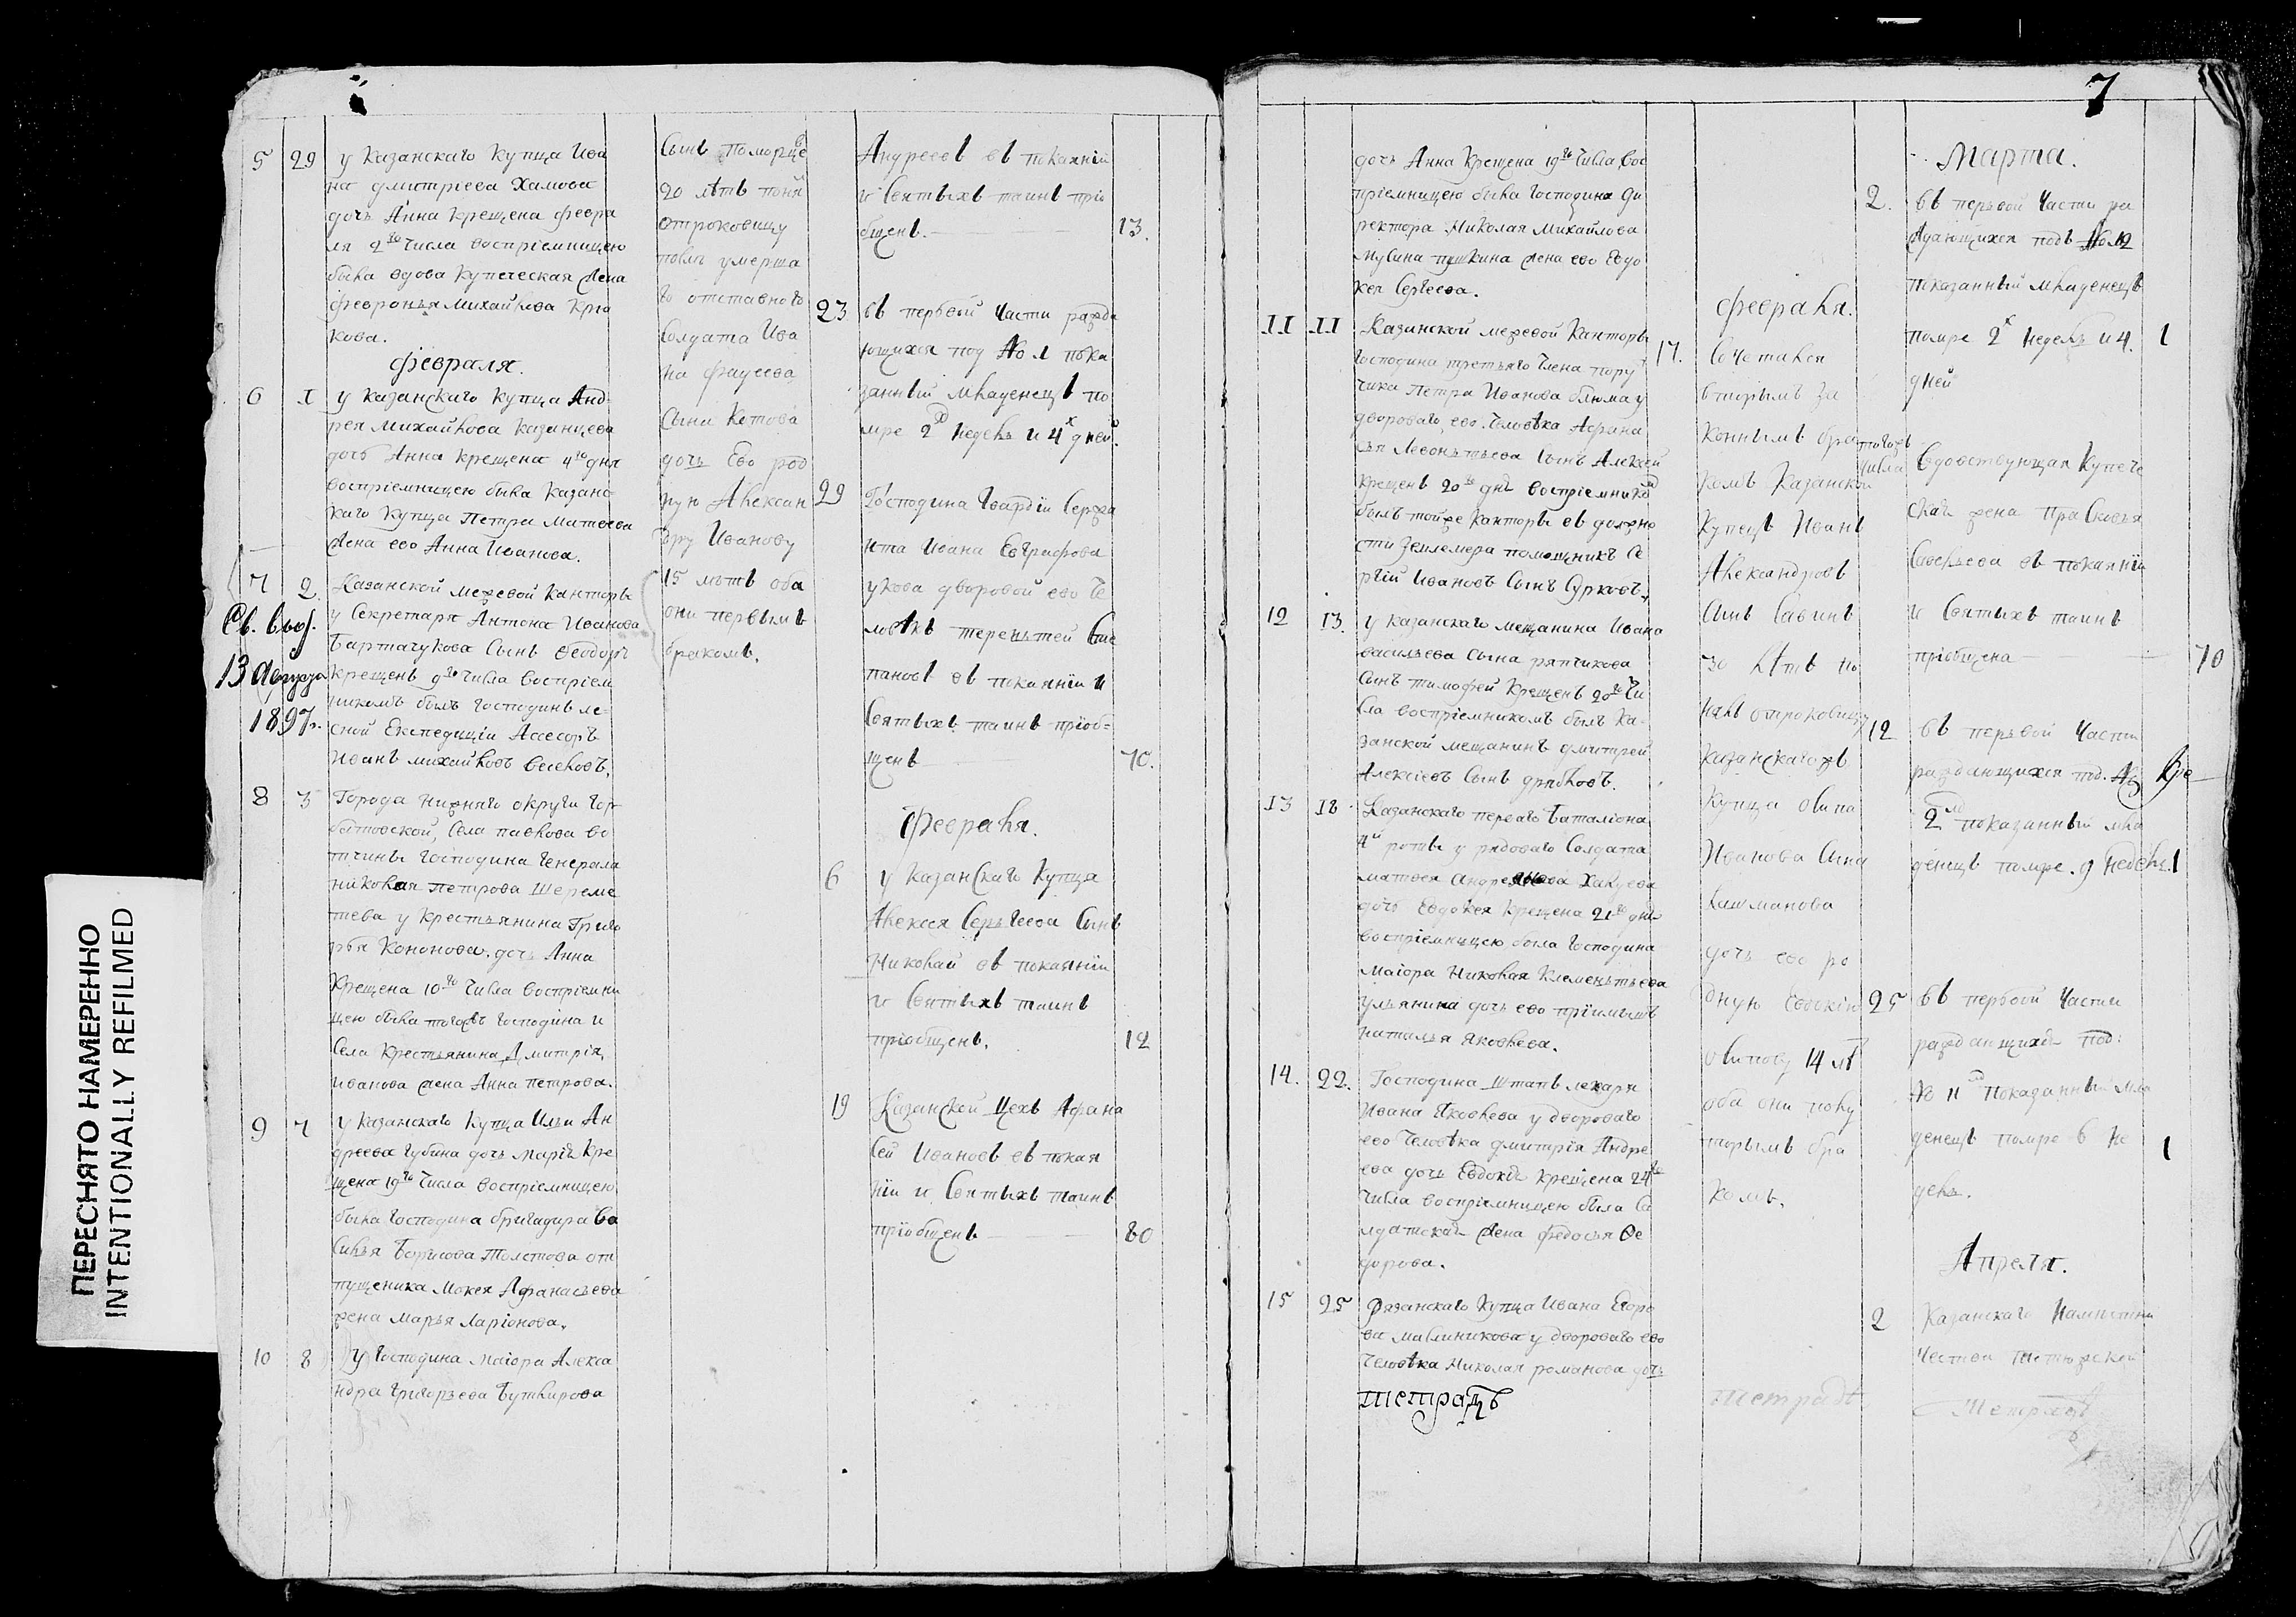 ПЕРЕСНЯТО НАМЕРЕННО
INTENTIONALLY REFILMED
5 29 у Казанскаго Купца Ива
на Дмитріева Хамова
дочь Анна Крещена февра
ля 2го Числа воспріемницею
была вдова Купеческая жена
февронья Михайлова Крю
кова.
февраля.
6 1 у Казанскаго Купца Анд
рея Михайлова Казанцева
дочь Анна Крещена 4го дня
воспріемницею была Казанс
каго Купца Петра Матвеева
жена ево Анна Иванова.
7 2. Казанской межевой Канторы
у Секретаря Антона Иванова
Сынъ Феодоръ
Крещенъ 9го Числа воспріем
никомъ былъ Господинъ ле
сной Експедиціи Ассесоръ
Иванъ Михайловъ
Св. выд.
13 Августа
1897г.
8 3 Города Нижняго округи Гор
батовской, Села Павлова во
тчины Господина Генерала
Николая Петрова Шереме
тева у Крестьянина Григо
рья Кононова дочь Анна
Крещена 10го Числа воспріемни
цею была тогожъ Господина и
Села Крестьянина Дмитрія
Иванова жена Анна Петрова.
9 7 у Казанскаго Купца Ильи Ан
дреева Губина дочь Марія Кре
щена 19го Числа воспріемницею
была Господина бригадира Ва
силья Борисова Толстова отп
ущеника Мокея Афанасьева
жена Марья Ларіонова.
10 8 у Господина Маіора Алекса
ндра Григорьева Бутлирова
Сынъ
20 лѣтъ понял
отроковицу
умерша
го отставного
Солдата Ива
на
Сына Котова
дочь Ево род
ную Алексан
дру Иванову
15 лѣтъ оба
они первымъ
бракомъ.
Андреевъ въ покаяніи
и Святыхъ таинъ прио
бщенъ. 13.
23 въ первой Части ражда
ющихся под № 1 пока
занный младенецъ по
мре 2 недель и 4х дней.
29 Господина Гвардіи Сержа
нта Ивана Евграфова
дворовой ево Че
ловѣкъ Терентей Сте
пановъ въ покаяніи и
Святыхъ таинъ пріоб
щенъ 70.
февраля.
6 у Казанскаго Купца
Алексея Сергеева Сынъ
Николай въ покаяніи
и Святыхъ таинъ
пріобщенъ. 12
19 Казанской Цехъ Афана
сей Ивановъ въ покая
ніи и Святыхъ таинъ
пріобщенъ 80
7
дочь Анна Крещена 19го Числа вос
пріемницею была Господина Ди
ректора Николая Михайлова
Мусина Пушкина жена ево Евдо
кея Сергеева.
11 11 Казанской межевой Канторы
Господина третьяго Члена пору
чика Петра Иванова у
двороваго ево Человѣка Афана
сья Левонтьева Сынъ Алексей
Крещенъ 20го дня воспріемникомъ
былъ тойже Канторы въ должно
сти Землемера помощникъ Се
ргій Ивановъ Сынъ Сурковъ.
12 13. у Казанскаго мещанина Ивана
Васильева Сына Ряпчикова
Сынъ Тимофей Крещенъ 20го Чи
сла воспріемникомъ былъ Ка
занской мещанинъ Дмитрей
Алексіевъ Сынъ
13 18 Казанскаго перваго Баталіона
4й роты у рядоваго Солдата
Матвея
дочь Евдокея Крещена 21го дня
воспріемницею была Господина
Маіора Николая Клементьева
Ульянина дочь ево
Наталья Яковлева.
14. 22. Господина Штапъ лекаря
Ивана Яковлева у двороваго
ево Человѣка Дмитрія Андре
ева дочь Евдокія Крещена 24го
Числа воспріемницею была Со
лдатская жена Федосья Фе
дорова.
15 25 Рязанскаго Купца Ивана Егоро
ва Малиникова у двороваго ево
Человѣка Николая Романова дочь
тетрадь
февраля.
17. Сочетался
вторымъ За
коннымъ бра
комъ Казанской
Купецъ Иванъ
Александровъ
Сынъ Савинъ
30 лѣтъ по
нялъ отроковицу
Казанскагожъ
Купца
Иванова Сына
Кашманова
дочь ево ро
дную Евдокію
14 лѣ
оба они
вторымъ бра
комъ.
тетрадь
Марта.
2. въ первой Части ра
ждающихся подъ № 12
показанный младенецъ
помре 2х недель и 4. 1
дней
Вдовствующая Купече
ская жена Прасковья
въ покаяніи
и Святыхъ таинъ
пріобщена 70
12 въ первой Части
раждающихся под. №
2 показанный мла
денецъ помре. 9 недель. 1
25 въ первой Части
раждающихся под:
№ 11 показанный мла
денецъ помре 6 не 1
дель.
Апреля.
2 Казанскаго Наместни
чества
Тетрадь